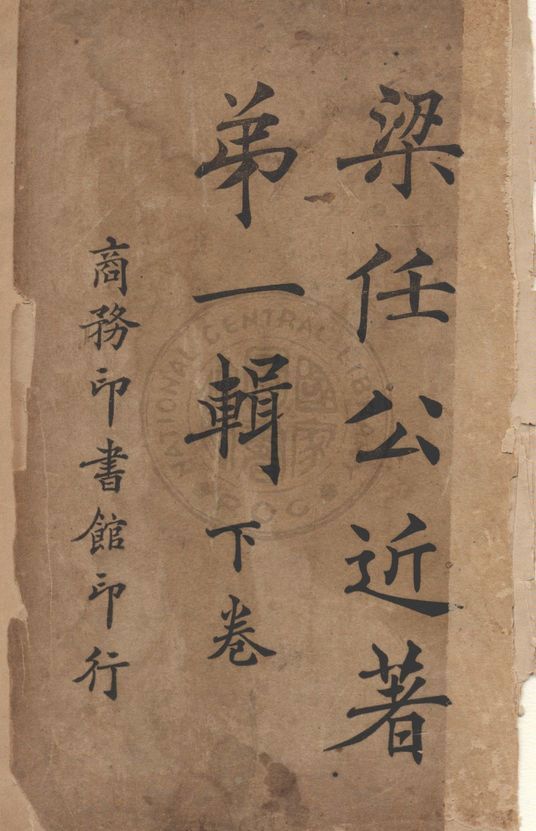 梁任公近著
弟一輯下卷
商務印書館印行
NATIONAL CENTRAL LIBRARY